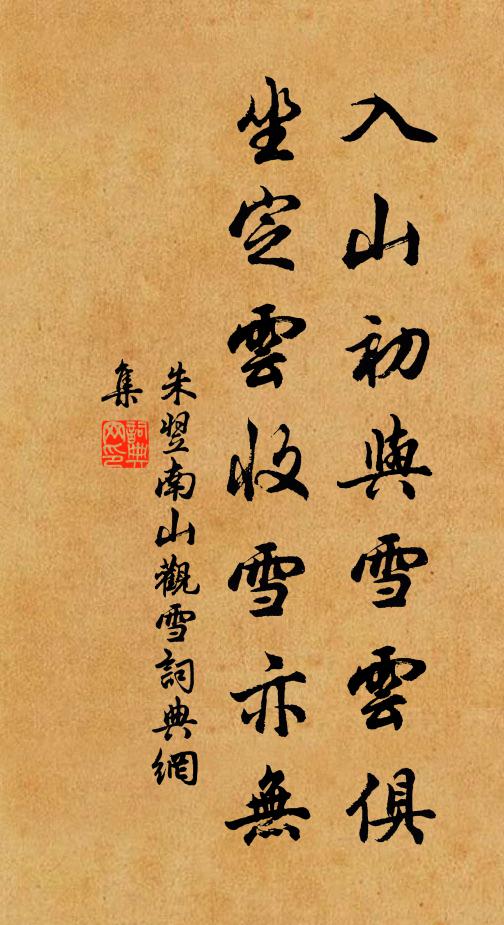 入山初與雪雲俱
坐定雲收雪亦無
朱翌南山觀雪詞典網
集
詞典
网印